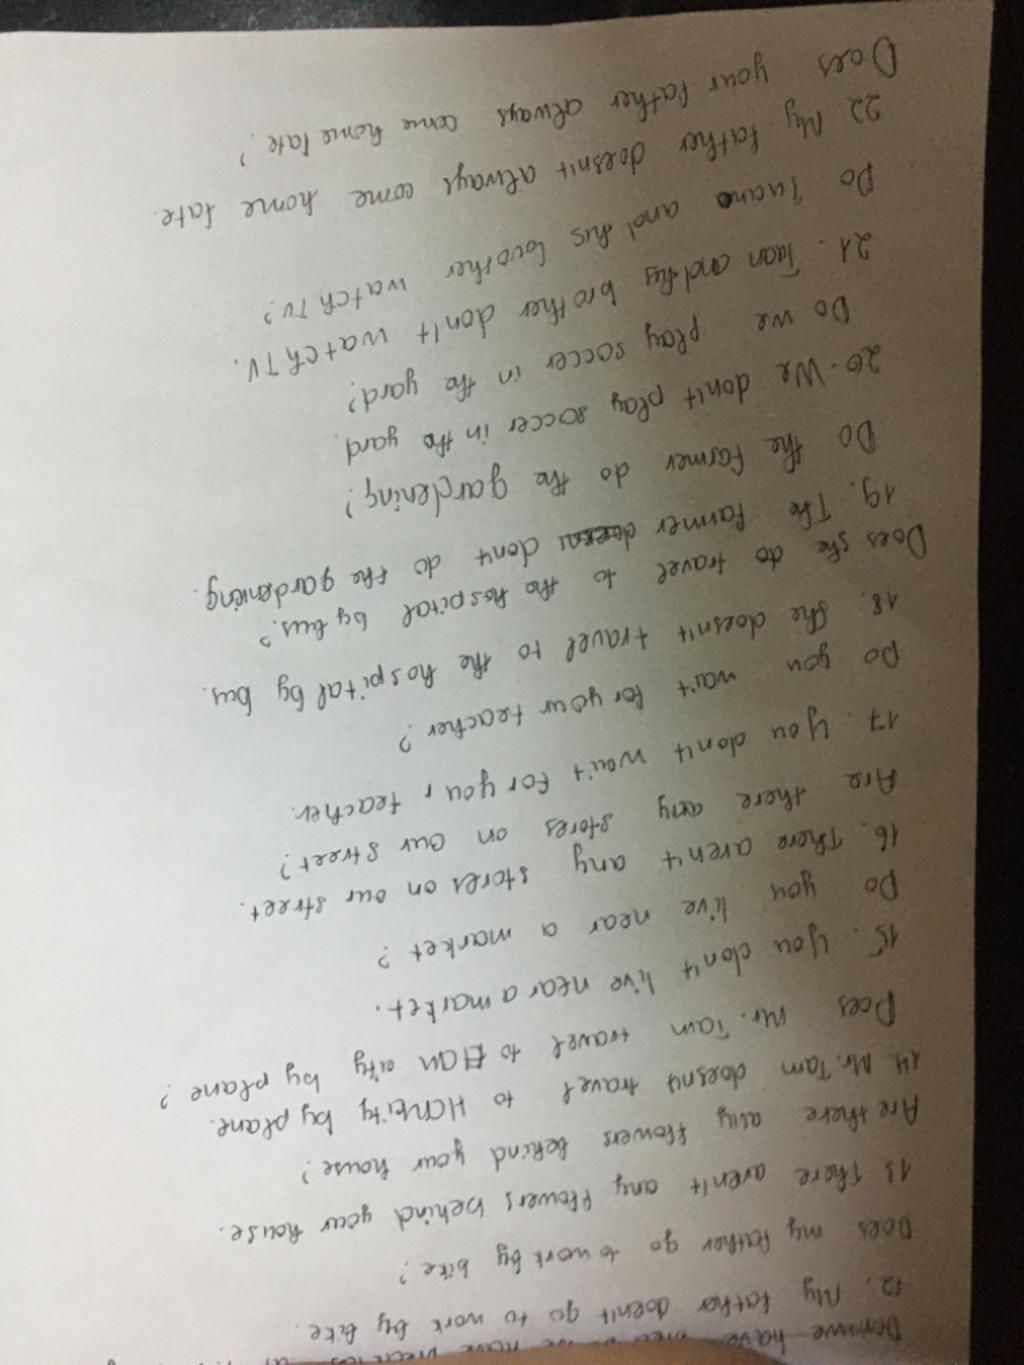 12. My father doesn't go to work by bike.
Does my father go to work by bike?
13 There aren't any flowers behind your house.
Are there any flowers behind your house?
14. Mr. Tam doesn't travel to HCM city by plane.
Does Mr. Tam travel to city by plane?
15. You don't live near a market.
Do you live near a market?
16. There aren't any stores on our street.
Are there any stores on our street?
17. You don't wait for your teacher.
Do you wait for your teacher?
18. She doesn't travel to the hospital by bus.
Does she do travel to the hospital by bus?
19. The farmer don't do the gardening.
Do the farmer do the gardening?
20. We don't play soccer in the yard.
Do we play soccer in the yard?
21. Tuan and his brother don't watch TV.
Do Tuan and his brother watch TV?
22. My father doesn't always come home late.
Does your father always come home late?